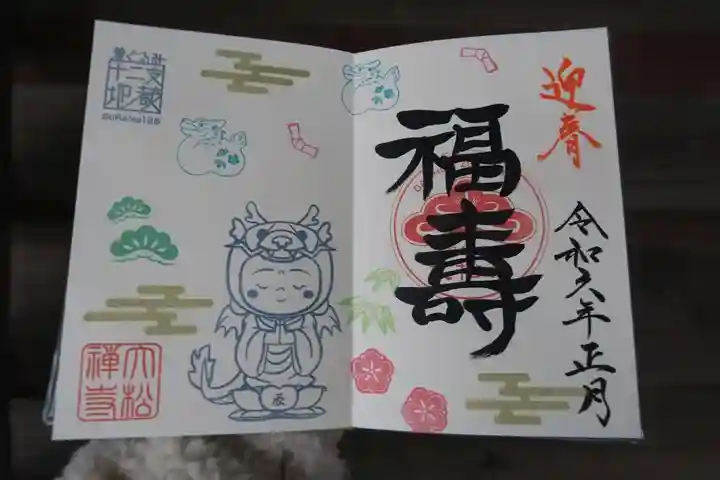 迎春
福壽
令和六年正月
十二支
地蔵
辰
大松
禅寺